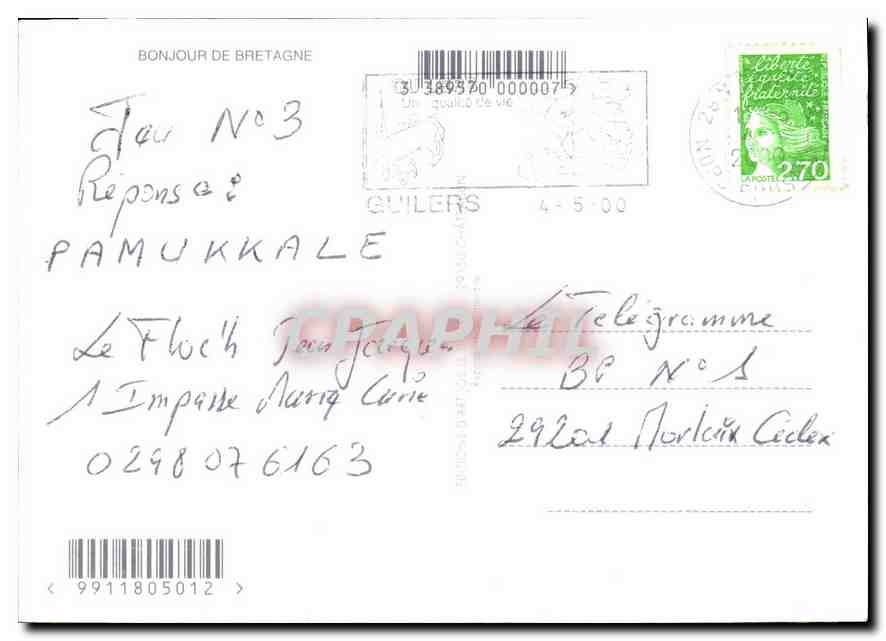 BONJOUR DE BRETAGNE
3 389570 000007 >
Une qualité de vie
GUILERS 4-5-00
liberté
égalité
fraternité
LA POSTE 2,70
Jeu N°3
Réponse :
PAMUKKALE
Le Floc'h Jean Jacques
1 Impasse Marie Curie
0298076163
Le Télégramme
BP N°1
29201 Morlaix Cedex
CPAPHIL
< 9911805012 >